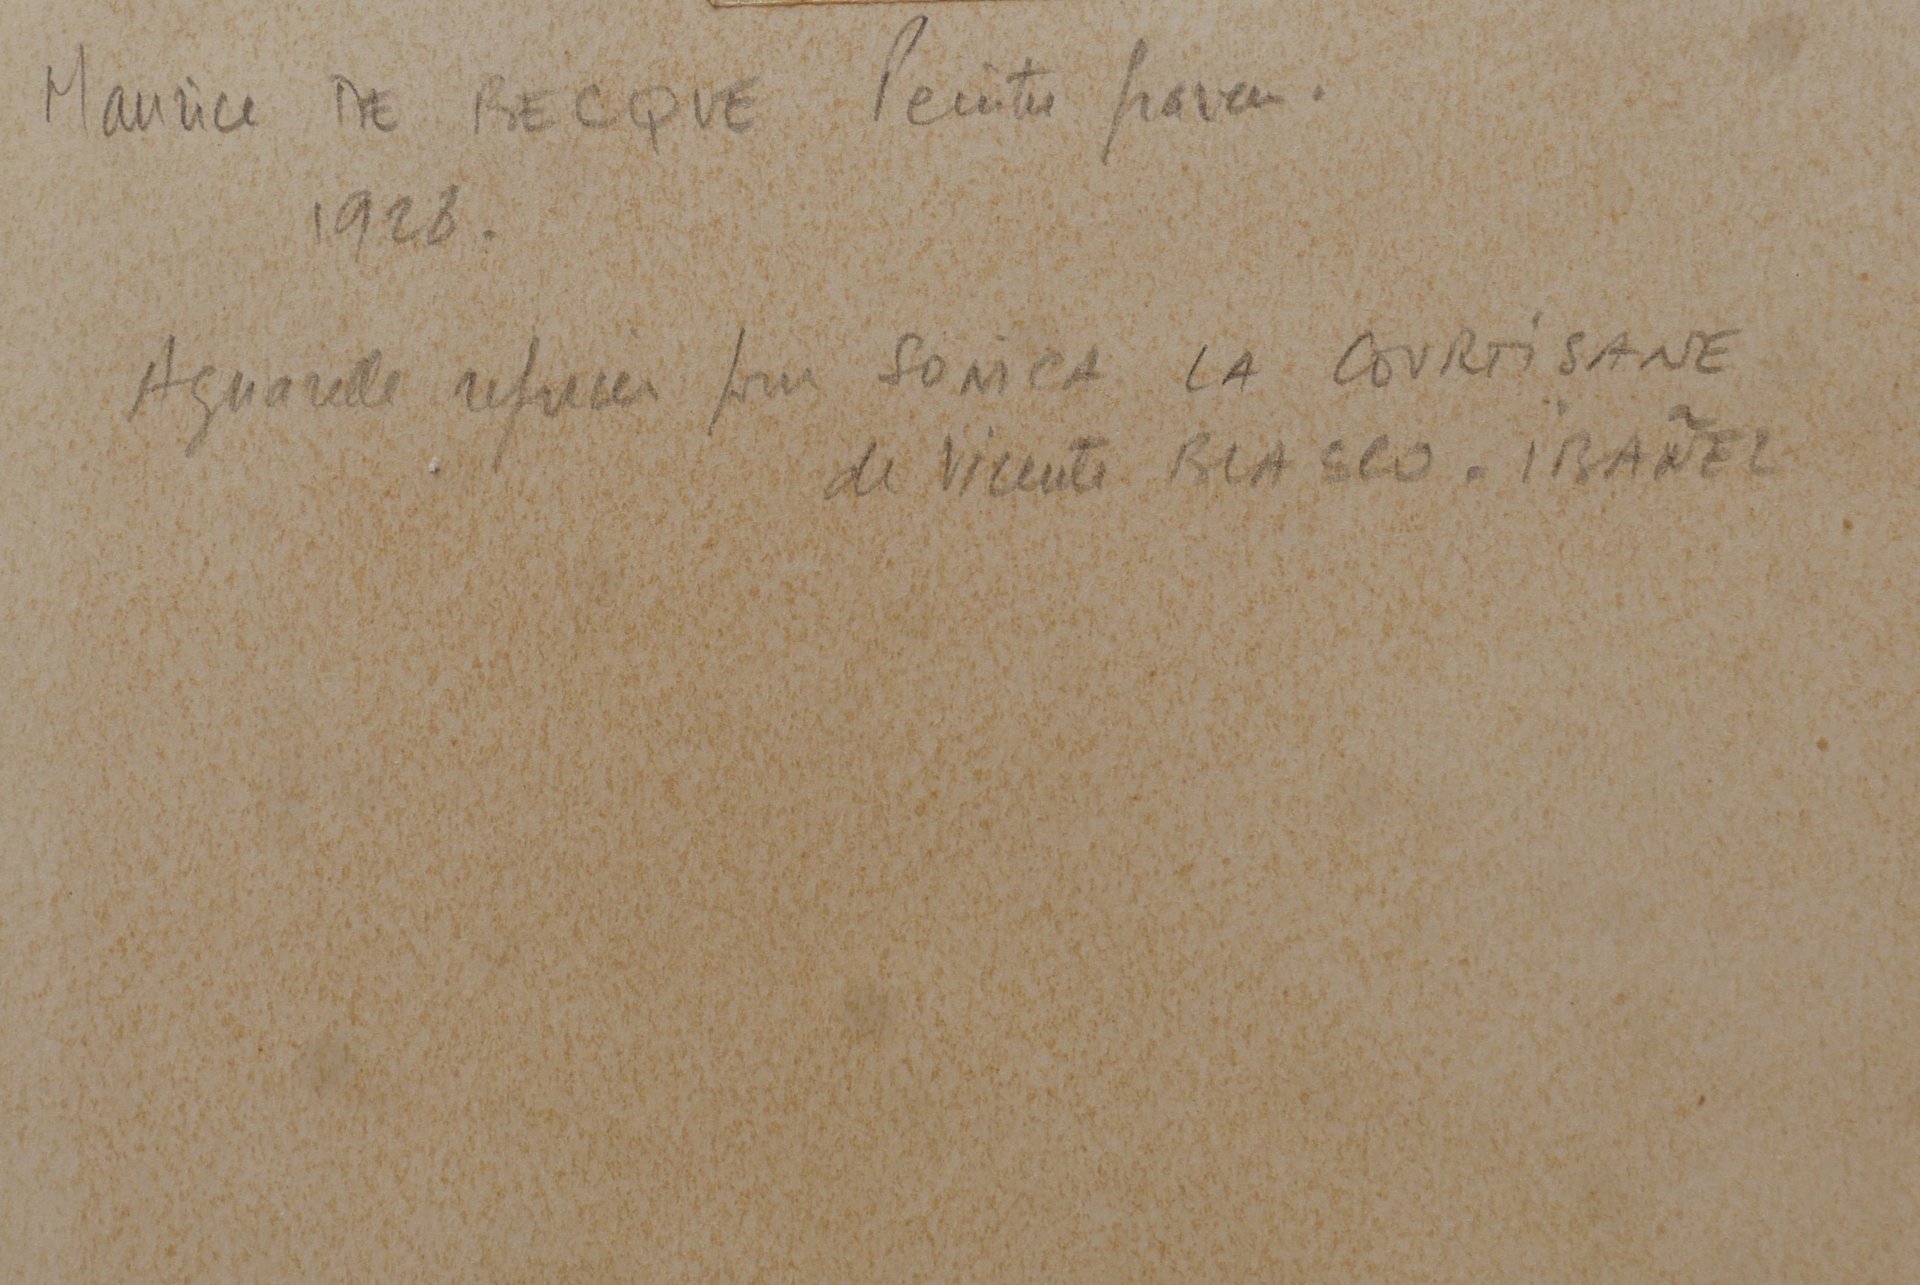 Maurice DE BECQUE Peintre graveur.
1928.
Aquarelle pour SONICA LA COURTISANE
de Vicente BLASCO. IBAÑEZ